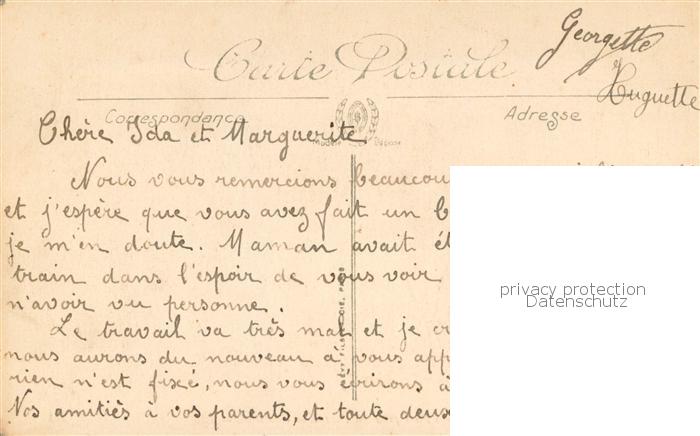 Georgette
Huguette
Carte Postale
Correspondance
Adresse
Chère Ida et Marguerite
Nous vous remercions beaucou
et j'espère que vous avez fait un b
je m'en doute. Maman avait ét
train dans l'espoir de vous voir
n'avoir vu personne.
Le travail va très mal et je cr
nous aurons du nouveau à vous app
rien n'est fixé, nous vous écrirons à
Nos amitiés à vos parents, et toute deux
privacy protection
Datenschutz